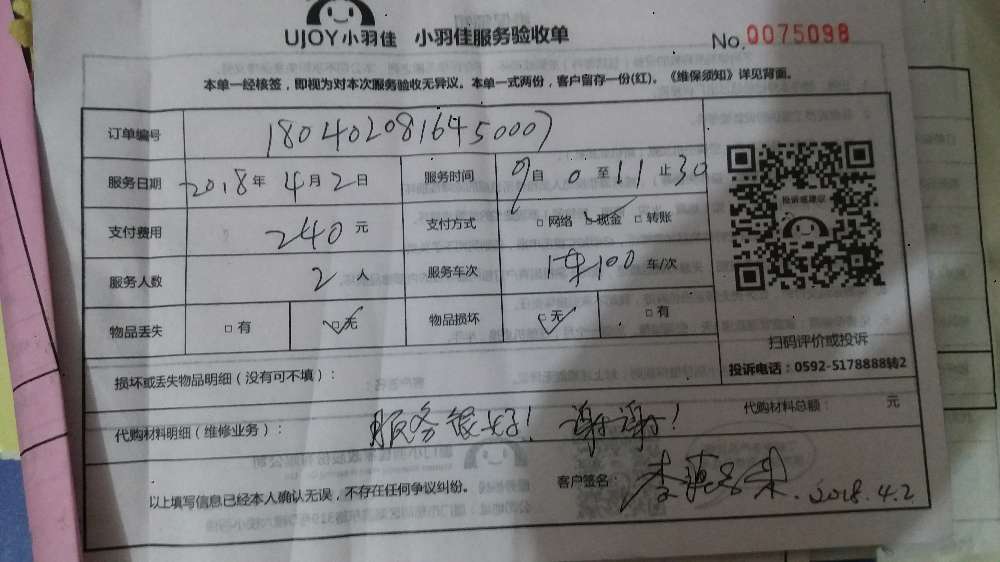 UJOY小羽佳 小羽佳服务验收单
No.0075098
本单一经核签，即视为对本次服务验收无异议。本单一式两份，客户留存一份(红)。《维保须知》详见背面。
订单编号 1804020816450007
服务日期 2018年4月2日 服务时间 9自0至11止30
支付费用 240元 支付方式 □网络 ☑现金 □转账
投诉或建议
服务人数 2人 服务车次 1车100车/次
物品丢失 □有 ☑无 物品损坏 ☑无 □有
扫码评价或投诉
投诉电话：0592-5178888转2
损坏或丢失物品明细（没有可不填）：
代购材料明细（维修业务）： 服务很好！谢谢！ 代购材料总额： 元
以上填写信息已经本人确认无误，不存在任何争议纠纷。 客户签名： 2018.4.2